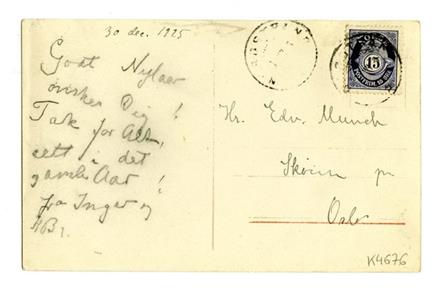 30 dec. 1925
Godt Nytaar
ønskes Dig!
Tak for Alt,
i det
gamle Aar!
fra Inger og
15
Hr. Edv. Munch
Skøien pr
Oslo
K4676